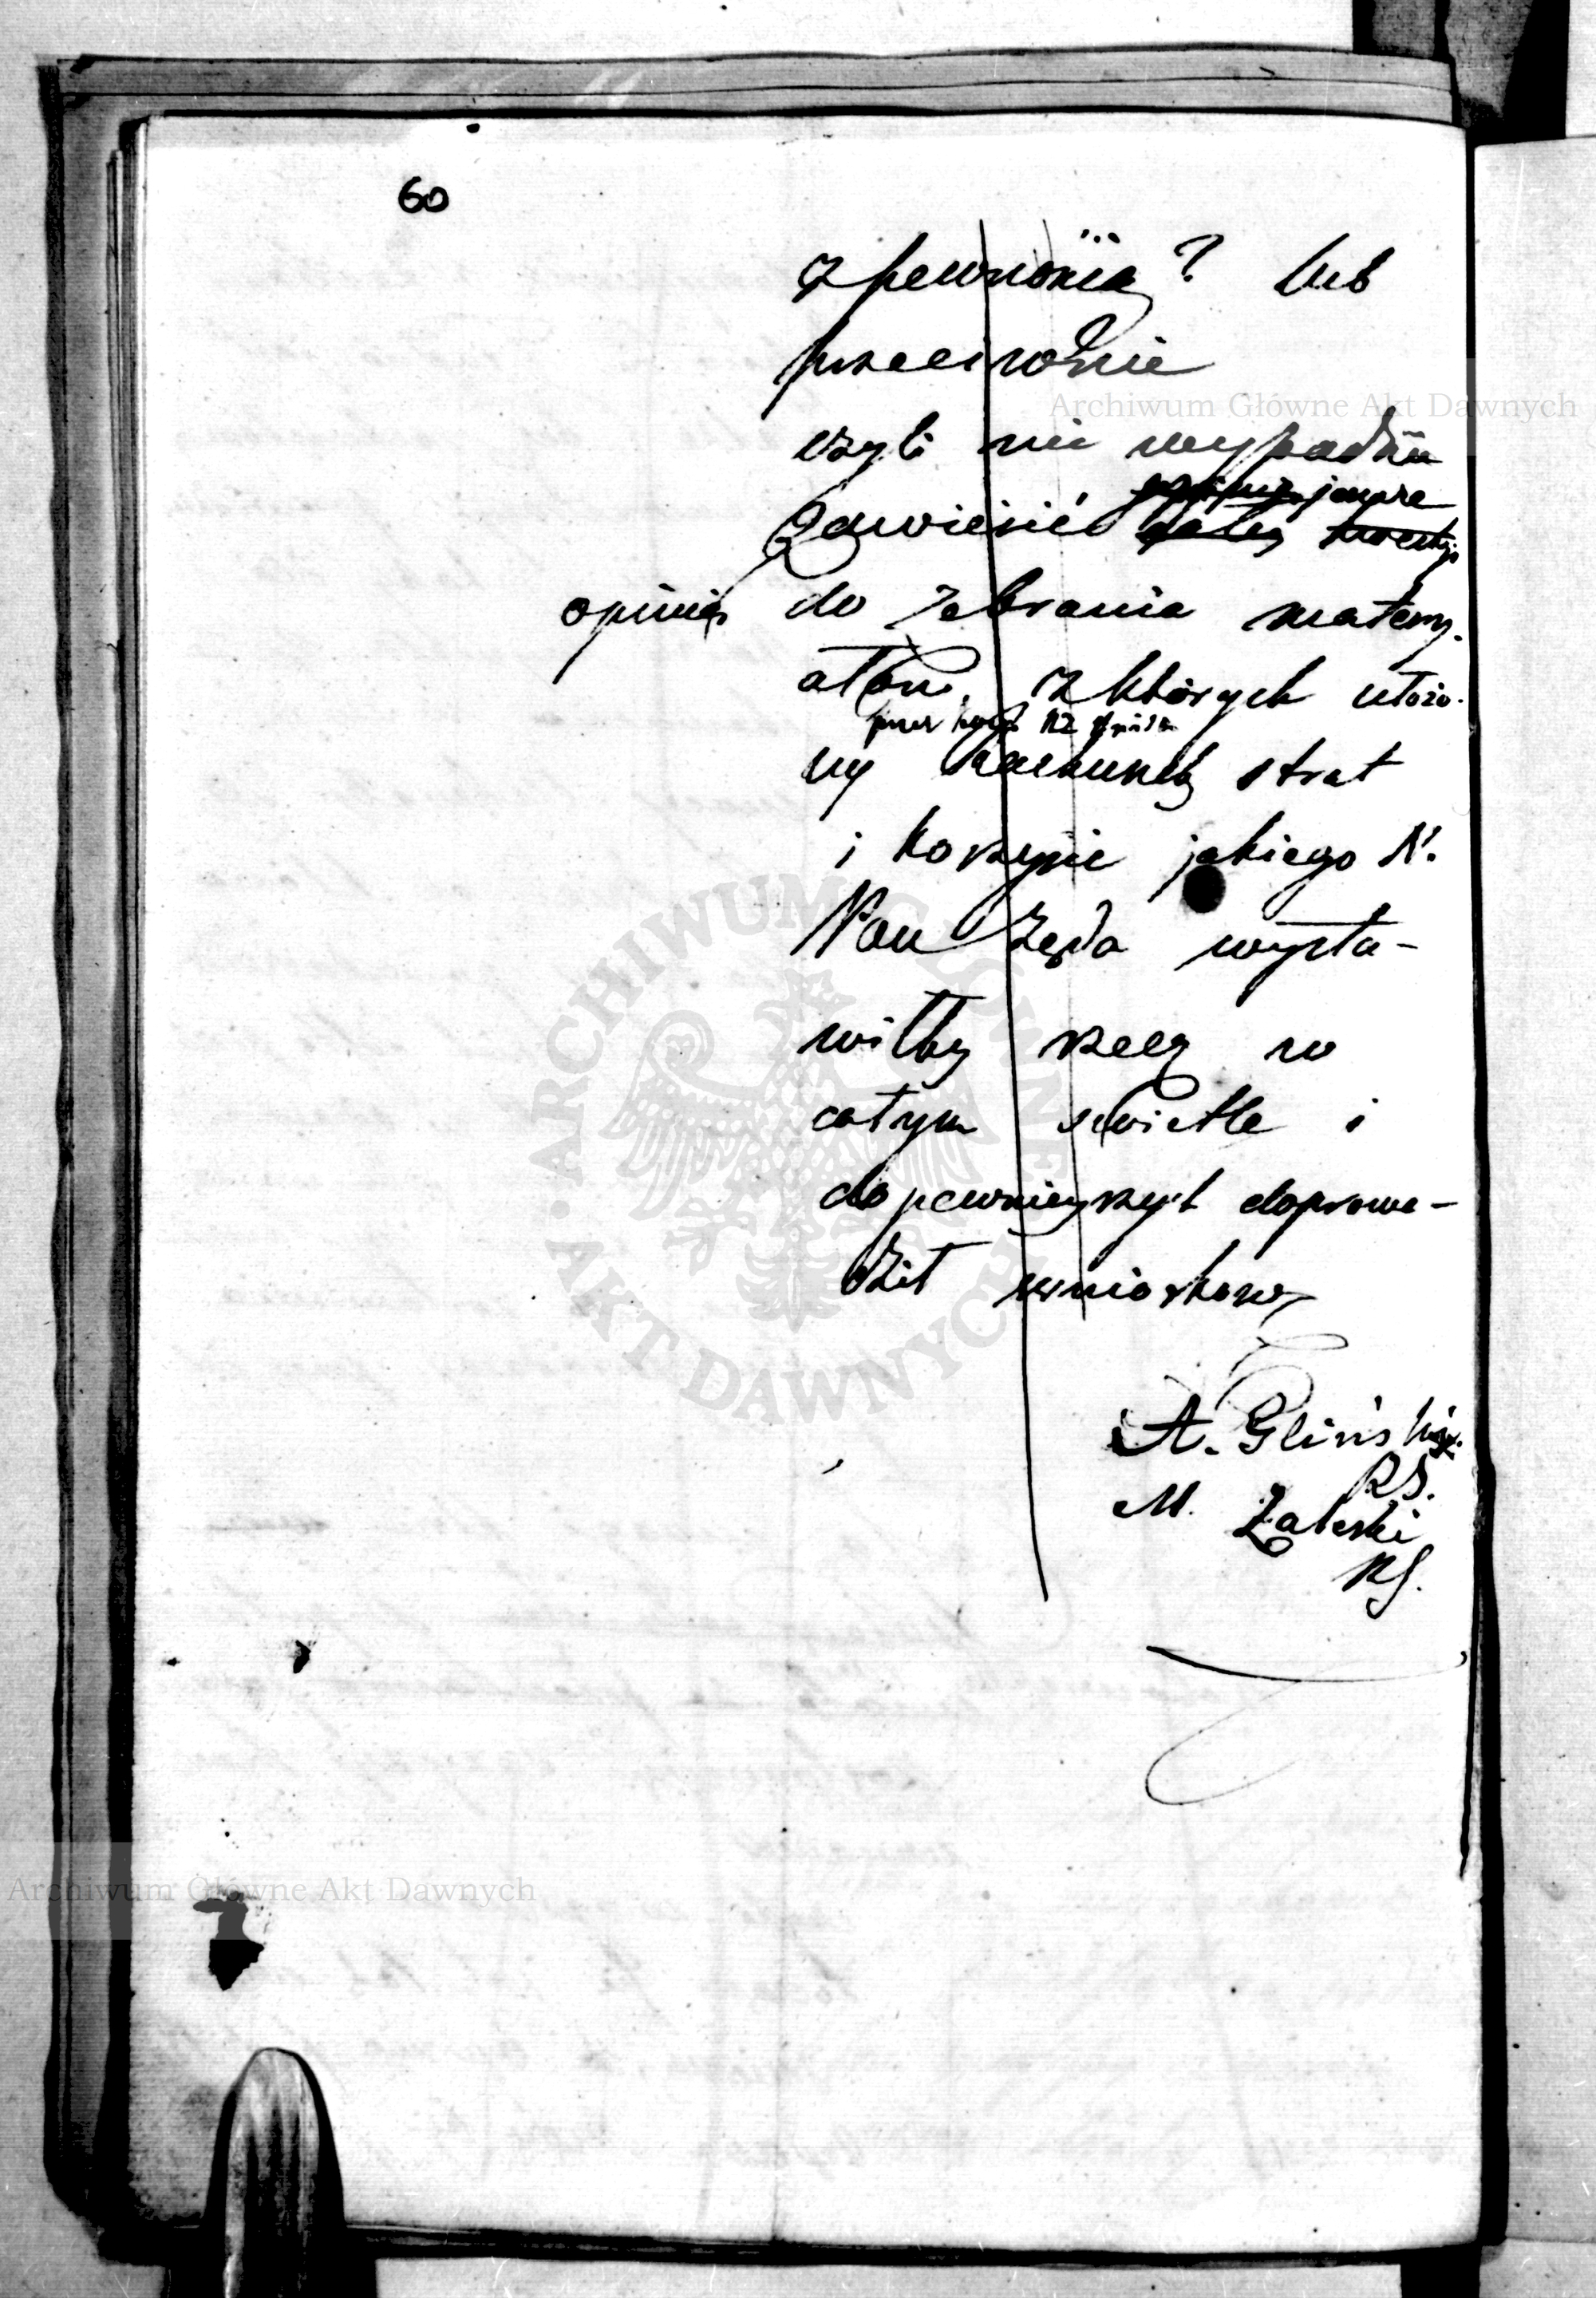 60
z pewnością? lub
przeciwnie
czyli nie wypadnie
jeszcze
Zawiesić całey kwestyi
opinią do zebrania matery-
ałow, z których ułożo-
przez
ny Rachunek strat
i korzyści jakiego N.
Pan żąda wysta-
wiłby rzecz w
całym świetle i
do pewnieyszych doprowa-
dził wniosków
A. Gliński
RS.
M. Zaleski
RS.
Archiwum Główne Akt Dawnych
ARCHIWUM GŁÓWNE • AKT DAWNYCH
Archiwum Główne Akt Dawnych